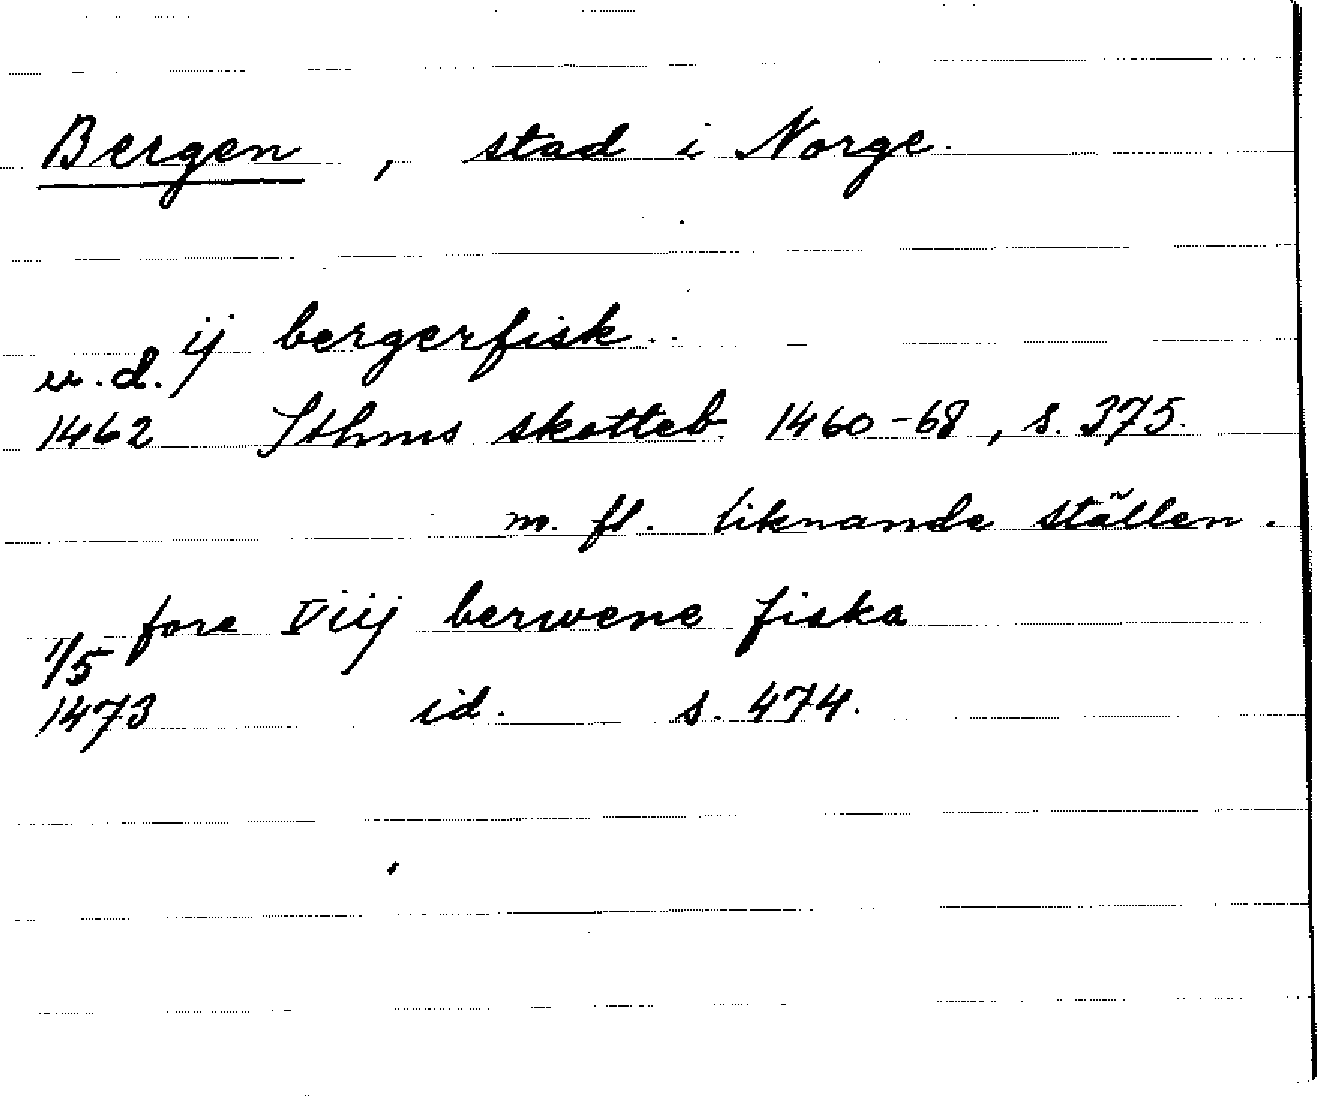 Bergen, stad i Norge.
ij bergerfisk..
u.d.
1462 Sthms skatteb. 1460-68, s. 375.
m. fl. liknande ställen.
fore Viij berwene fiska
1/5
1473 id. s. 474.